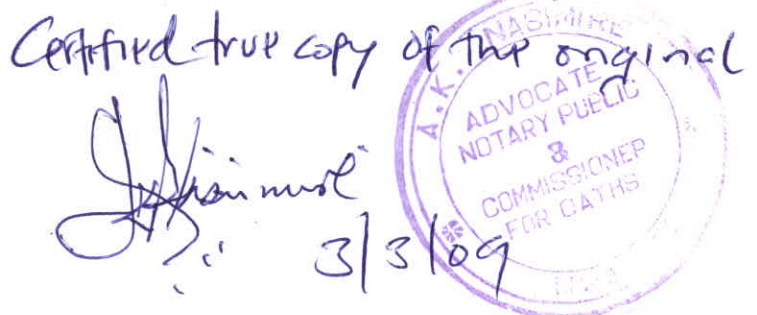 Certified true copy of the original
3/3/09
A. K. NASIMIRE
ADVOCATE
NOTARY PUBLIC
&
COMMISSIONER
FOR OATHS